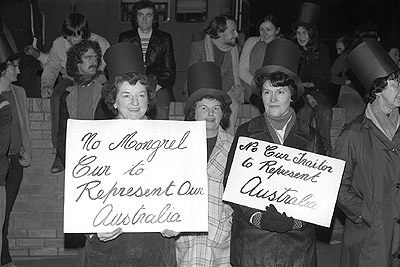 No Mongrel
Cur to
Represent Our
Australia
No Cur Traitor
to Represent
Australia